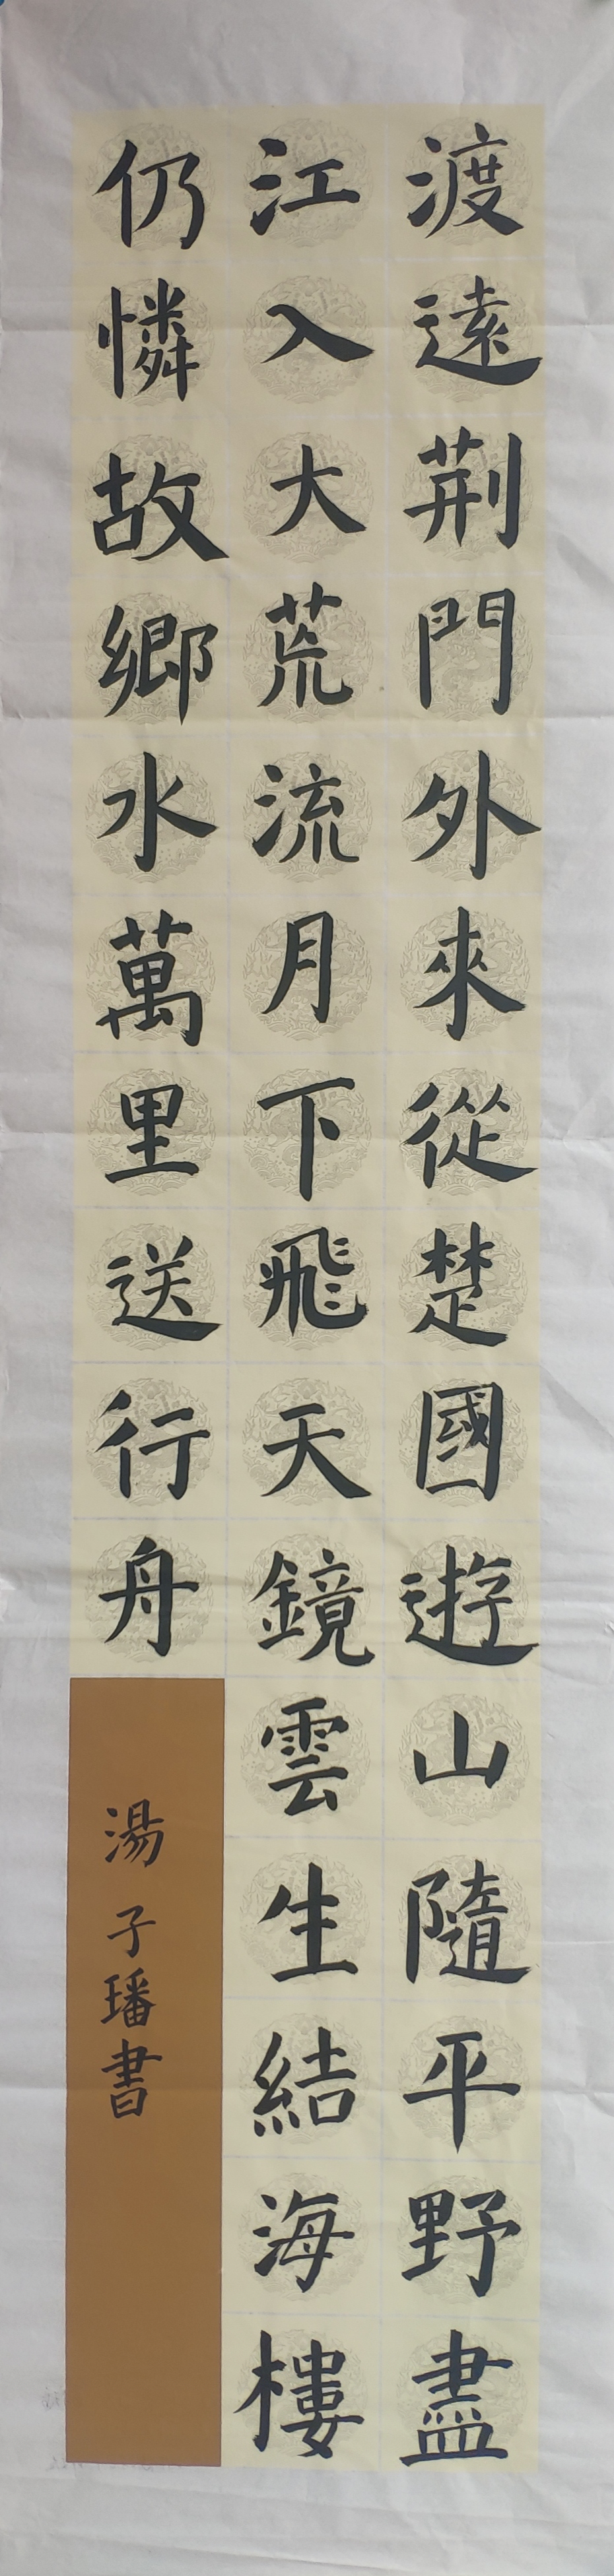 渡遠荊門外來從楚國遊山隨平野盡
江入大荒流月下飛天鏡雲生結海樓
仍憐故鄉水萬里送行舟
湯子璠書